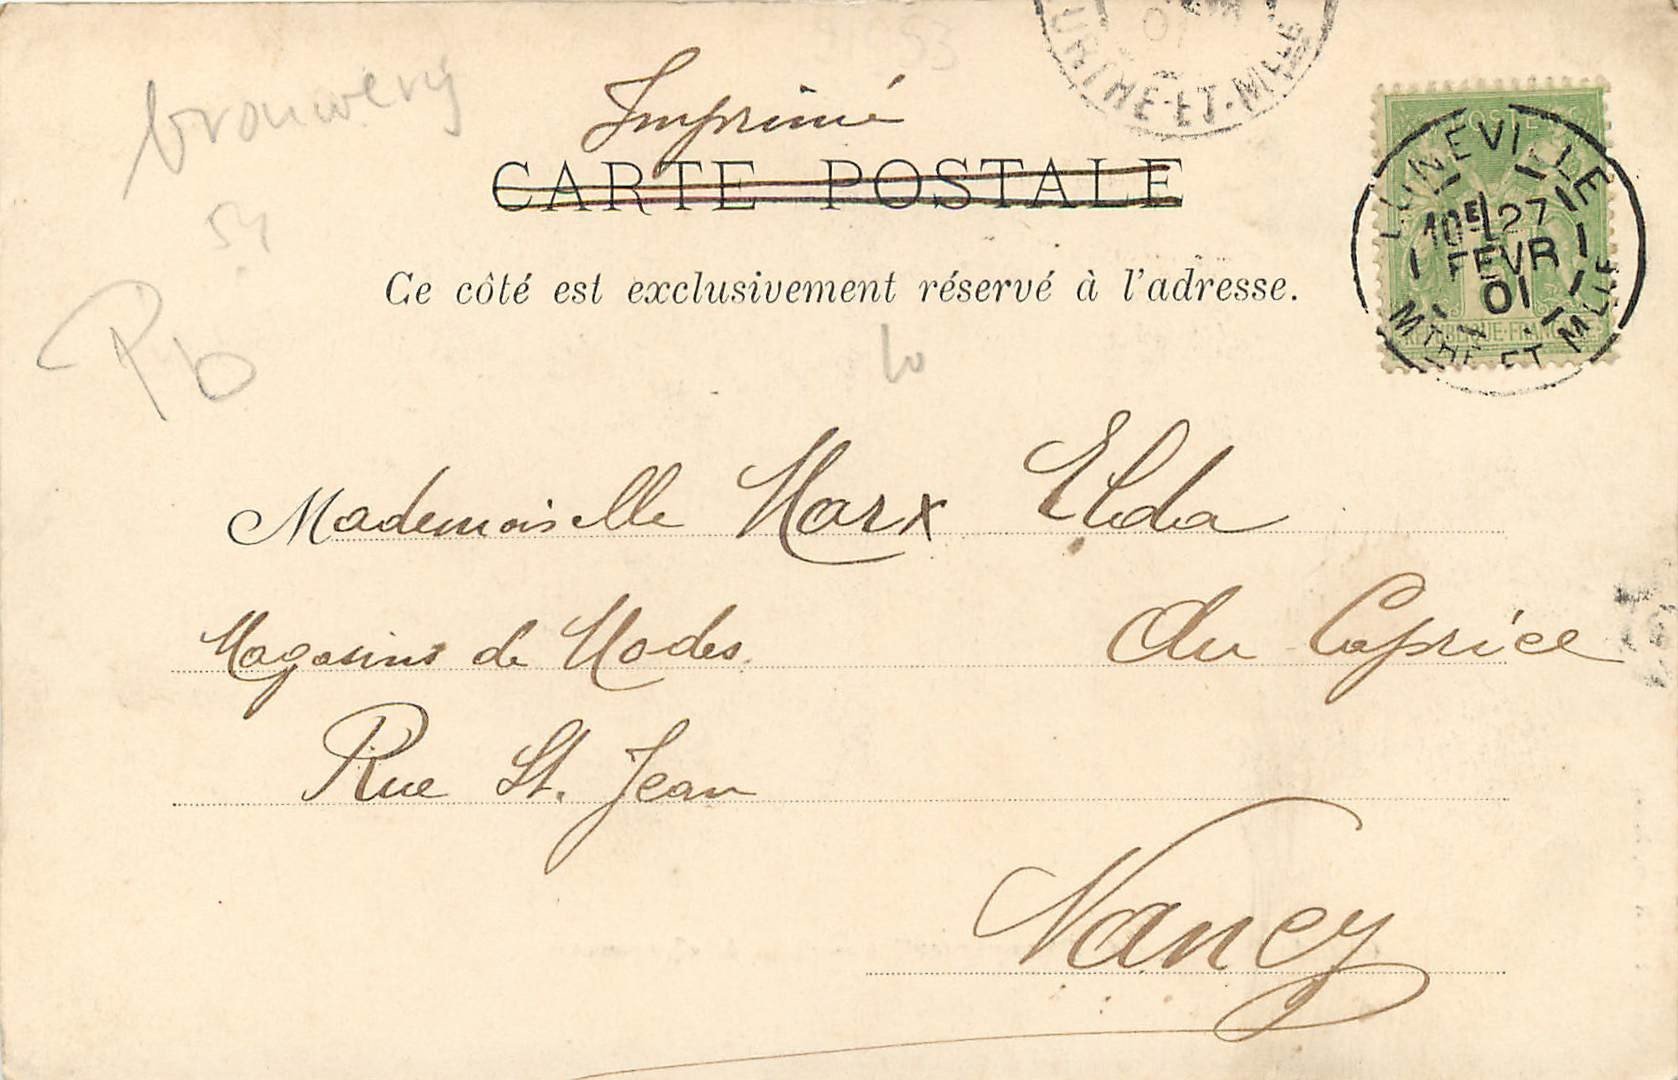 53
01
URTHE-ET-MLLE
brouwerij
Imprimé
CARTE POSTALE
LUNEVILLE
10E 27
FEVR
01
MTHE ET MLLE
54
Ce côté est exclusivement réservé à l'adresse.
Pb
10
Mademoiselle Marx Elda
Magasins de Modes du Caprice
Rue St. Jean
Nancy